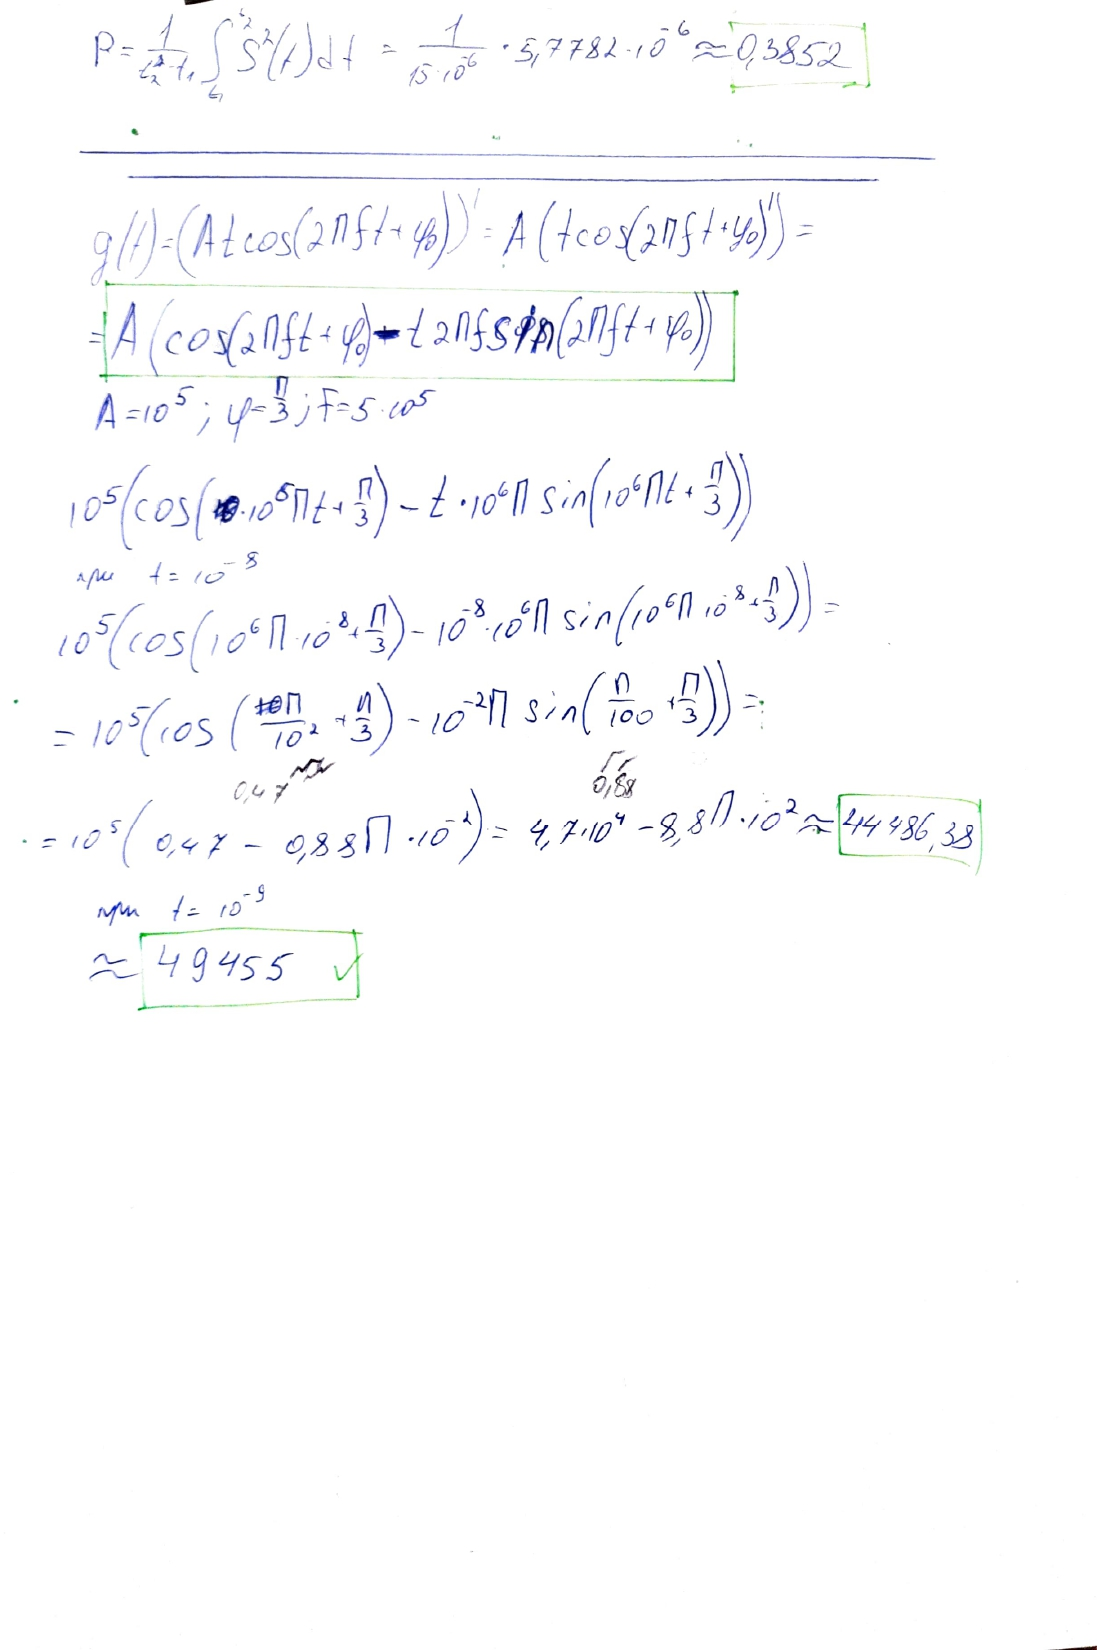 P = 1/(t₂-t₁) ∫ₜ₁^t₂ S²(t)dt = 1/(15·10⁻⁶) · 5,7782·10⁻⁶ ≈ 0,3852
g(t)=(At cos(2πft+φ₀))' = A(t cos(2πft+φ₀)') =
= A(cos(2πft+φ₀) - t 2πf sin(2πft+φ₀))
A=10⁵; φ=π/3; F=5·10⁵
10⁵(cos(·10⁶πt+π/3) - t·10⁶π sin(10⁶πt+π/3))
при t=10⁻⁸
10⁵(cos(10⁶π·10⁻⁸+π/3) - 10⁻⁸·10⁶π sin(10⁶π·10⁻⁸+π/3)) =
= 10⁵(cos(π/10²+π/3) - 10⁻²π sin(π/100+π/3)) =
0,47 0,88
= 10⁵(0,47 - 0,88π·10⁻²) = 4,7·10⁴ - 8,8π·10² ≈ 44486,38
при t=10⁻⁹
≈ 49455 ✓